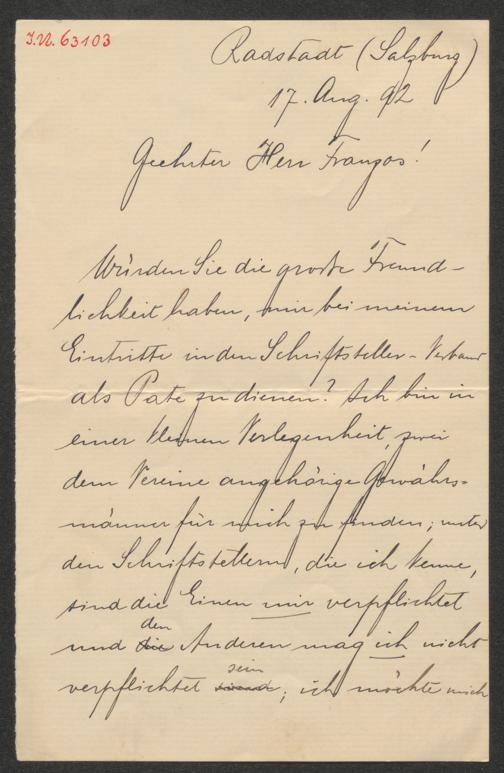 I.N. 63103
Radstadt (Salzburg)
17. Aug. 92
Geehrter Herr Franzos!
Würden Sie die große Freund-
lichkeit haben, mir bei meinem
Eintritte in den Schriftsteller-Verband
als Pate zu dienen? Ich bin in
einer kleinen Verlegenheit, zwei
dem Vereine angehörige Gewährs-
männer für mich zu finden; unter
den Schriftstellern, die ich kenne,
sind die Einen mir verpflichtet
und die den Anderen mag ich nicht
verpflichtet sein; ich möchte mich